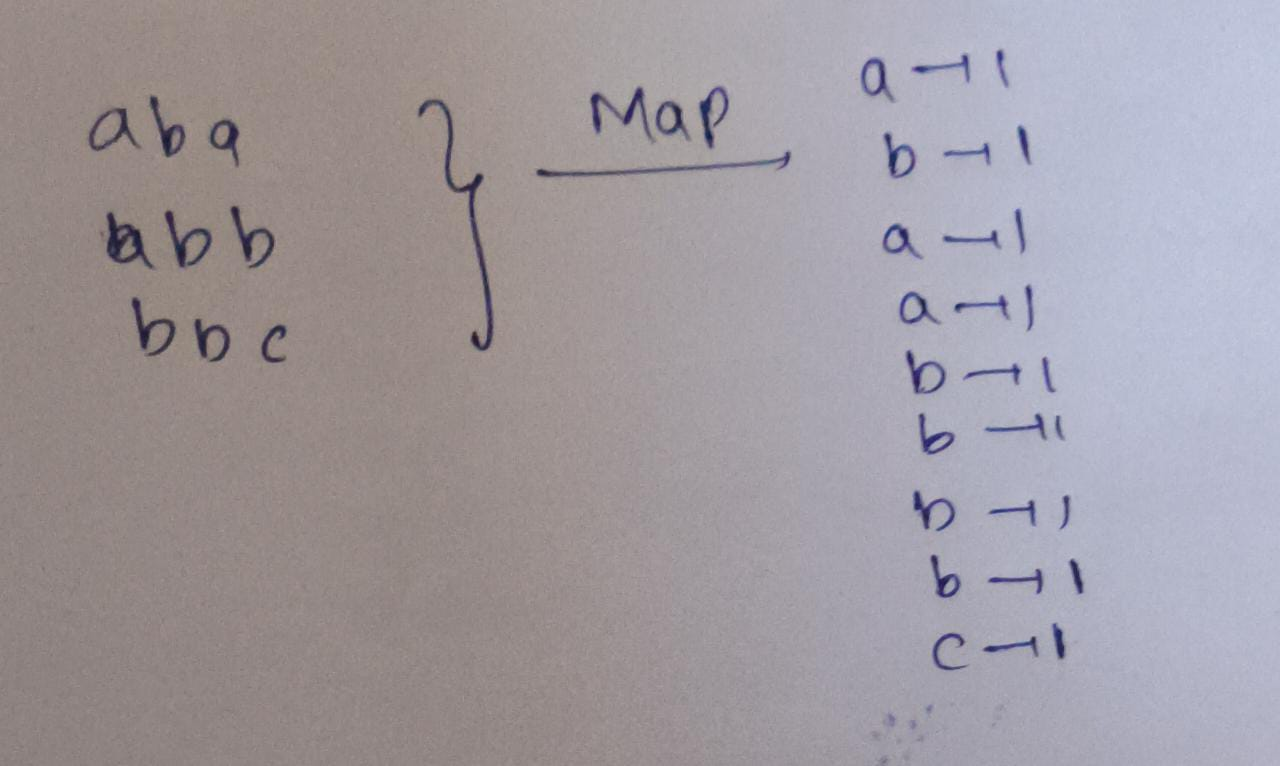 a b a
a b b
b b c
Map
a → 1
b → 1
a → 1
a → 1
b → 1
b → 1
b → 1
b → 1
c → 1